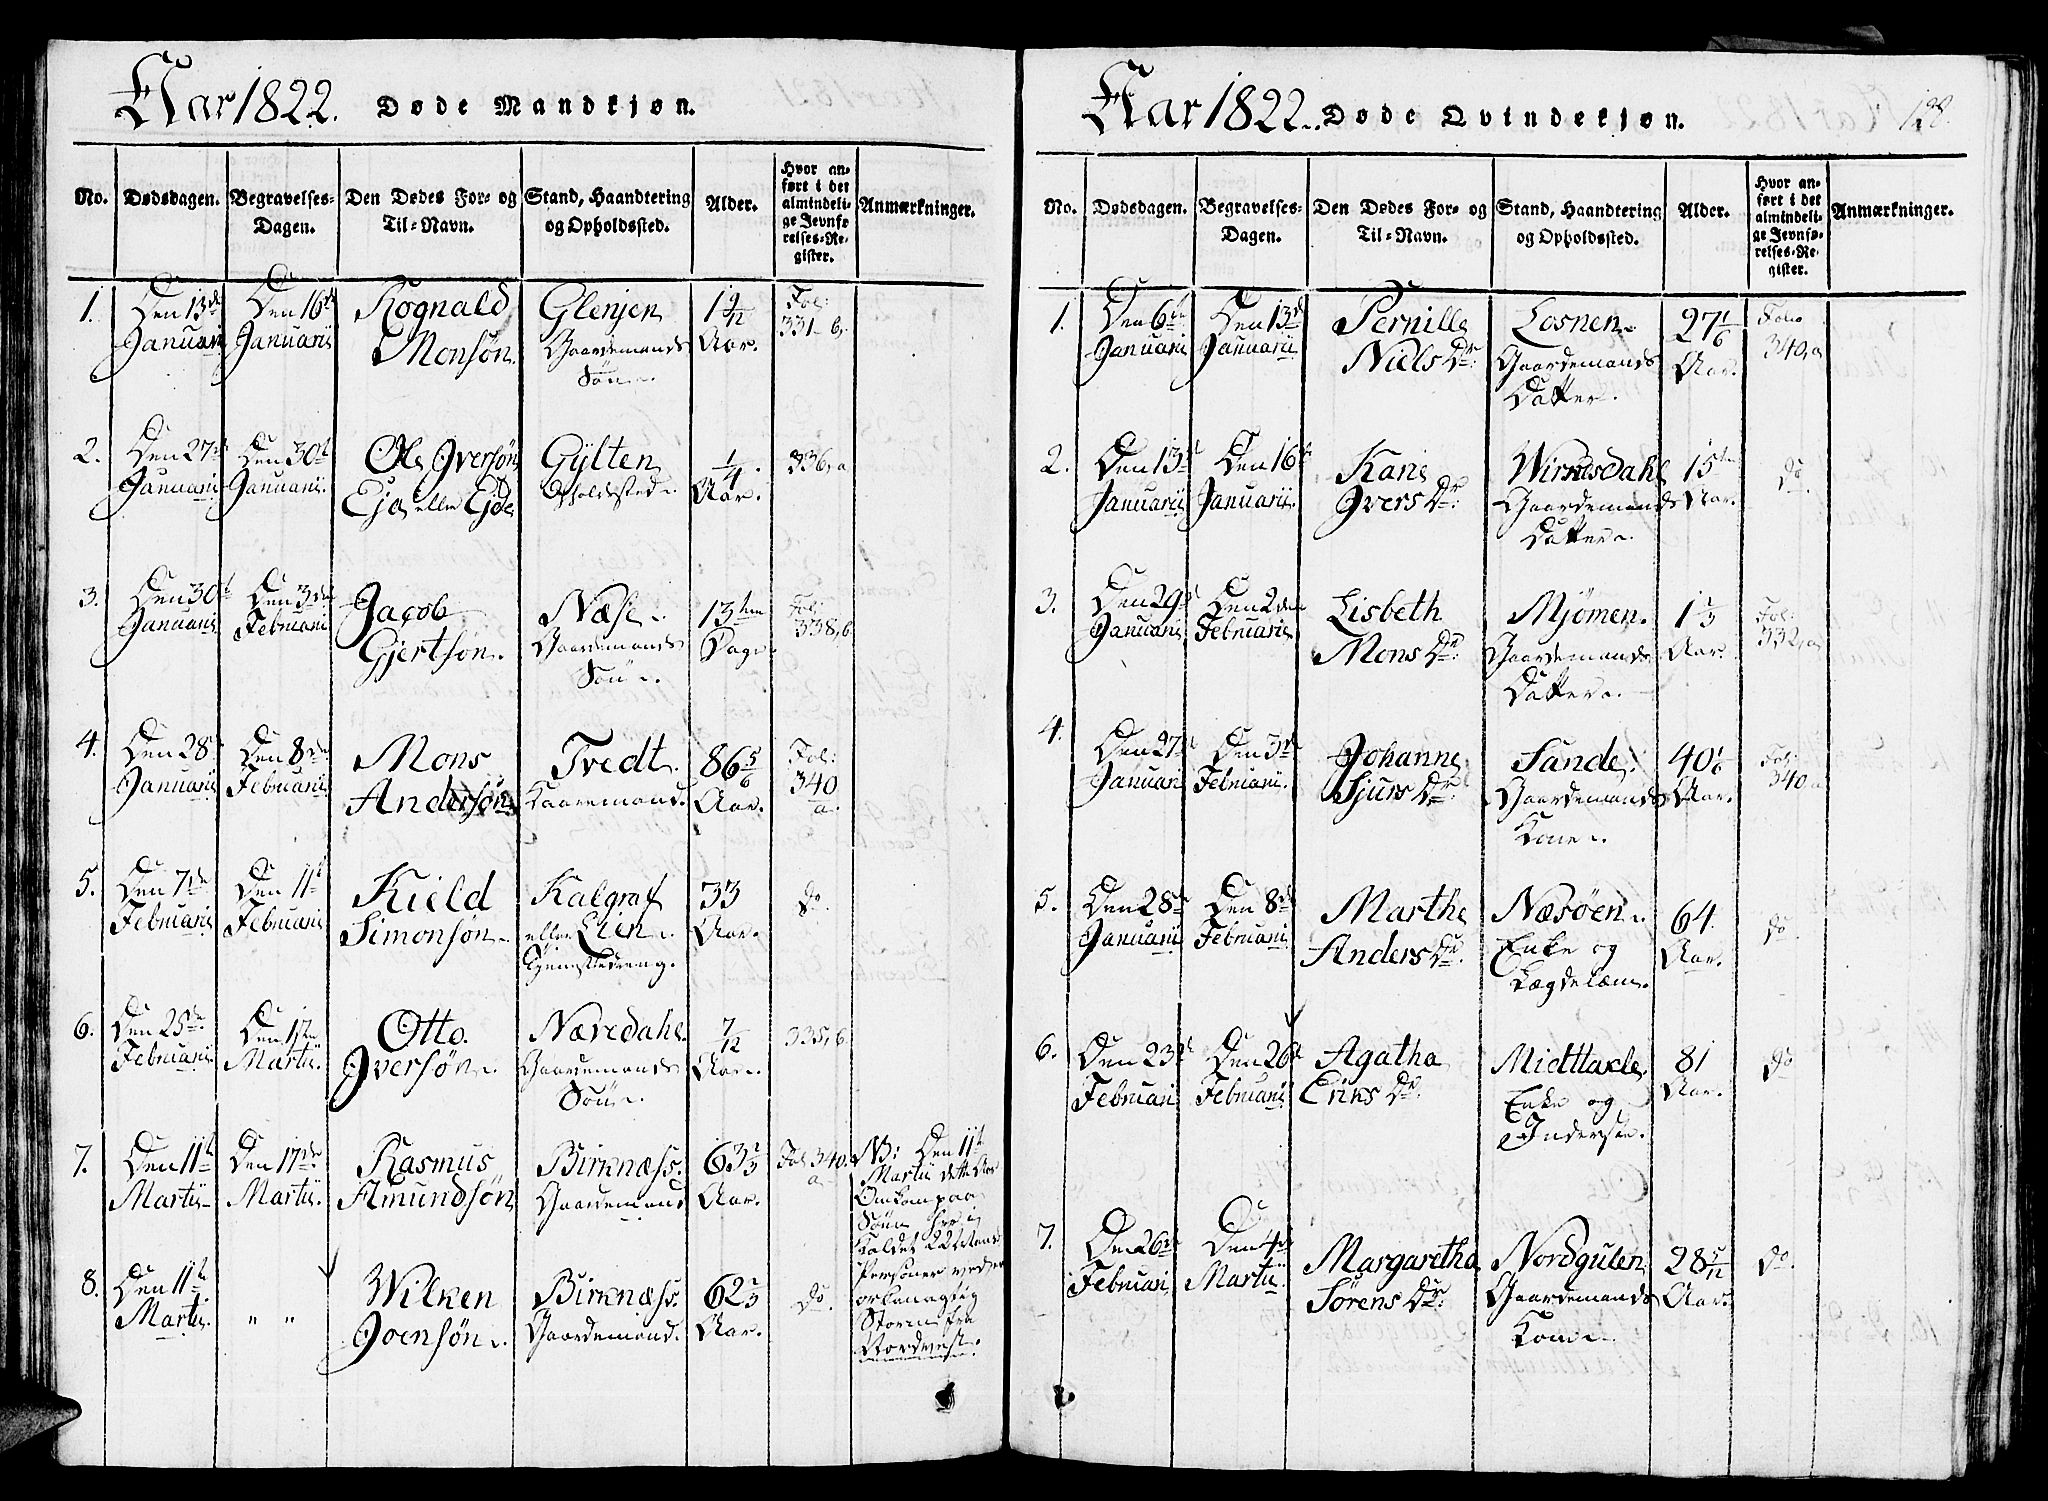 Aar 1822. Døde Mandkjøn.
No. Dødsdagen. Begravelses-Dagen. Den Dødes For- og Til-Navn. Stand, Haandtering og Opholdssted. Alder. Hvor anført i det almindelige Jevnførelses-Register. Anmærkninger.
1. Den 13de Januarii Den 16de Januarii Rognald Monsøn. Glenjen Gaardemands Søn. 1 9/12 Aar. Fol: 331-b.
2. Den 27de Januarii Den 30te Januarii. Ole Iversøn Eja eller Eide Gylten Opholdssted. 1/4 Aar. 336, a
3. Den 30te Januarii Den 3die Februarii Jacob Gjertsøn. Næse. Gaardemands Søn. 13ten Dage Fol: 338, b
4. Den 28de Januarii Den 8de Februarii Mons Andersøn Tvedt. Kaaremand. 86 5/6 Aar. Fol: 340 a.
5. Den 7de Februarii Den 11te Februarii Kield Simonsøn. Kalgraf eller Lien. Tjenestedreng. 33 Aar. do.
6. Den 25de Februarii Den 1ste Martii. Otto Iversøn. Næredahl Gaardemands Søn. 7/12 Aar. 335, b
7. Den 11te Martii Den 17de Martii. Rasmus Amundsøn Birknæss. Gaardemand 63 2/3 Aar. Fol 340. a NB: Den 11te Martii dette Aar Omkom paa Søen her i Kaldet 22 Mands Personer ved en orkanagtig Storm fra Nordvest.
8. Den 11te Martii. " " Wilken Joensøn. Birknæss. Gaardemand. 62 2/3 Aar. do.
Aar 1822. Døde Qvindekjøn.
128.
No. Dødsdagen. Begravelses-Dagen. Den Dødes For- og Til-Navn. Stand, Haandtering og Opholdssted. Alder. Hvor anført i det almindelige Jevnførelses-Register. Anmærkninger.
1. Den 6te Januarii Den 13de Januarii Pernille Niels Dr. Losnen. Gaardemands Datter. 27 1/6 Aar. Fol: 340, a
2. Den 13de Januarii Den 16de Januarii. Kari Ivers Dr. Gaardemands Datter. 15ten Aar. do.
3. Den 29de Januarii Den 2den Februarii Lisbeth Mons Dr. Mjömen. Gaardemands Datter. 1 2/3 Aar. Fol: 332, a
4. Den 27de Januarii Den 3die Februarii. Johanne Sjurs Dr. Sande. Gaardemands Kone. 40 1/6 Aar. Fol: 340. a
5. Den 28de Januarii Den 8de Februarii Marthe Anders Dr. Næsöen. Enke og Lægdslem. 64 Aar. do.
6. Den 23de Februarii Den 26de Februarii Agatha Eriks Dr. Enke og Inderste. 81 Aar. do
7. Den 26de Februarii Den 4de Martii Margaretha Sörens Dr. Nordgulen Gaardemands Kone. 28 5/12 Aar. do.